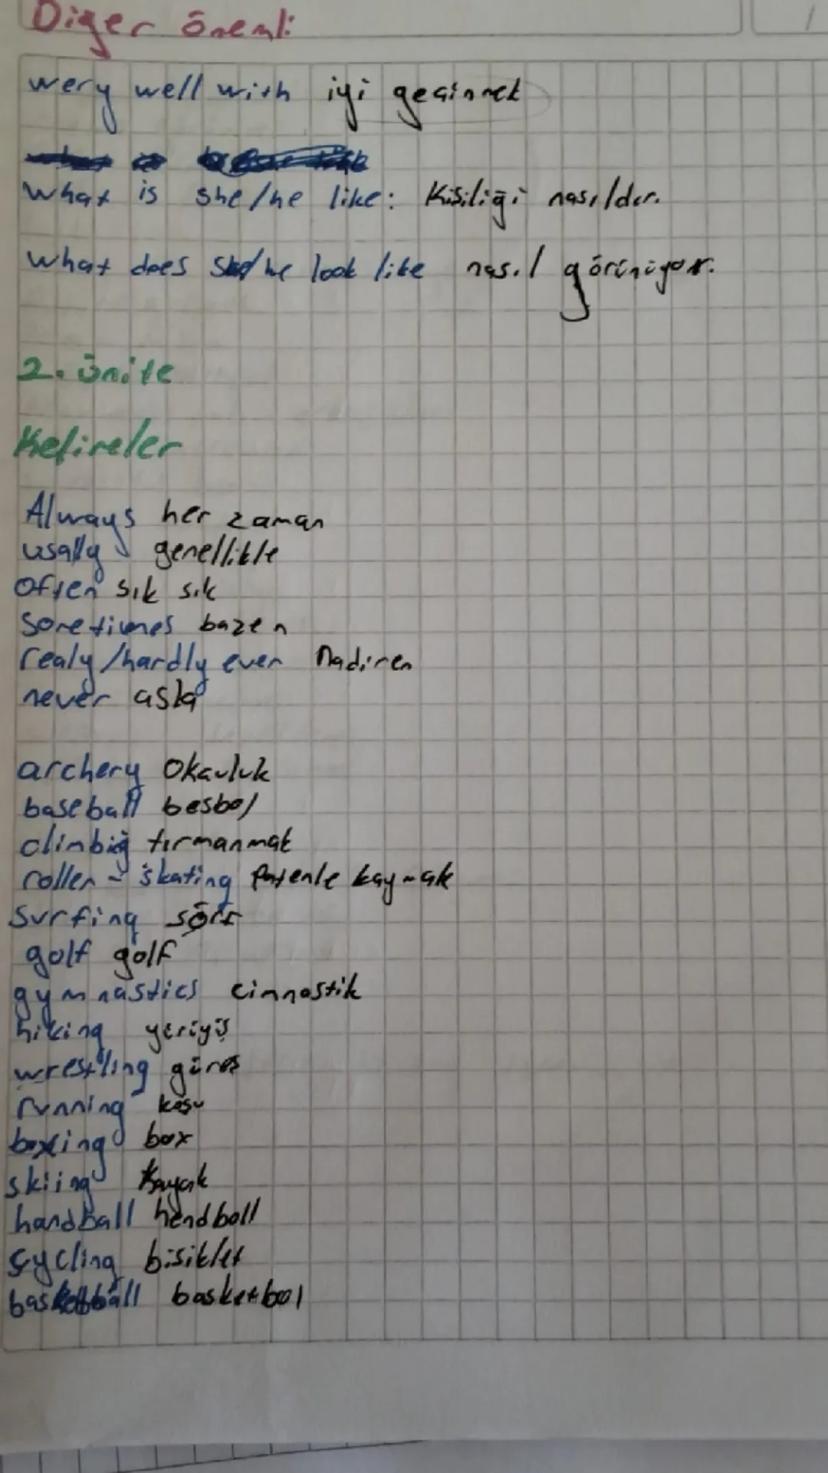 Diğer önemli
wery well with iyi geçinmek
What is she/he like: Kişiliği nasıldır.
What does she/he look like nasıl görünüyor.
2. ünite
Kelimeler
Always her zaman
usally genellikle
Often sık sık
Sometimes bazen
realy/hardly ever Nadiren
never asla
archery Okçuluk
baseball besbol
climbig tırmanmak
roller-skating Patenle kaymak
Surfing sörf
golf golf
gymnastics cimnastik
hiking yürüyüş
wrestling güreş
running koşu
boxing box
skiing Kayak
handball hendboll
cycling bisiklet
basketball basketbol